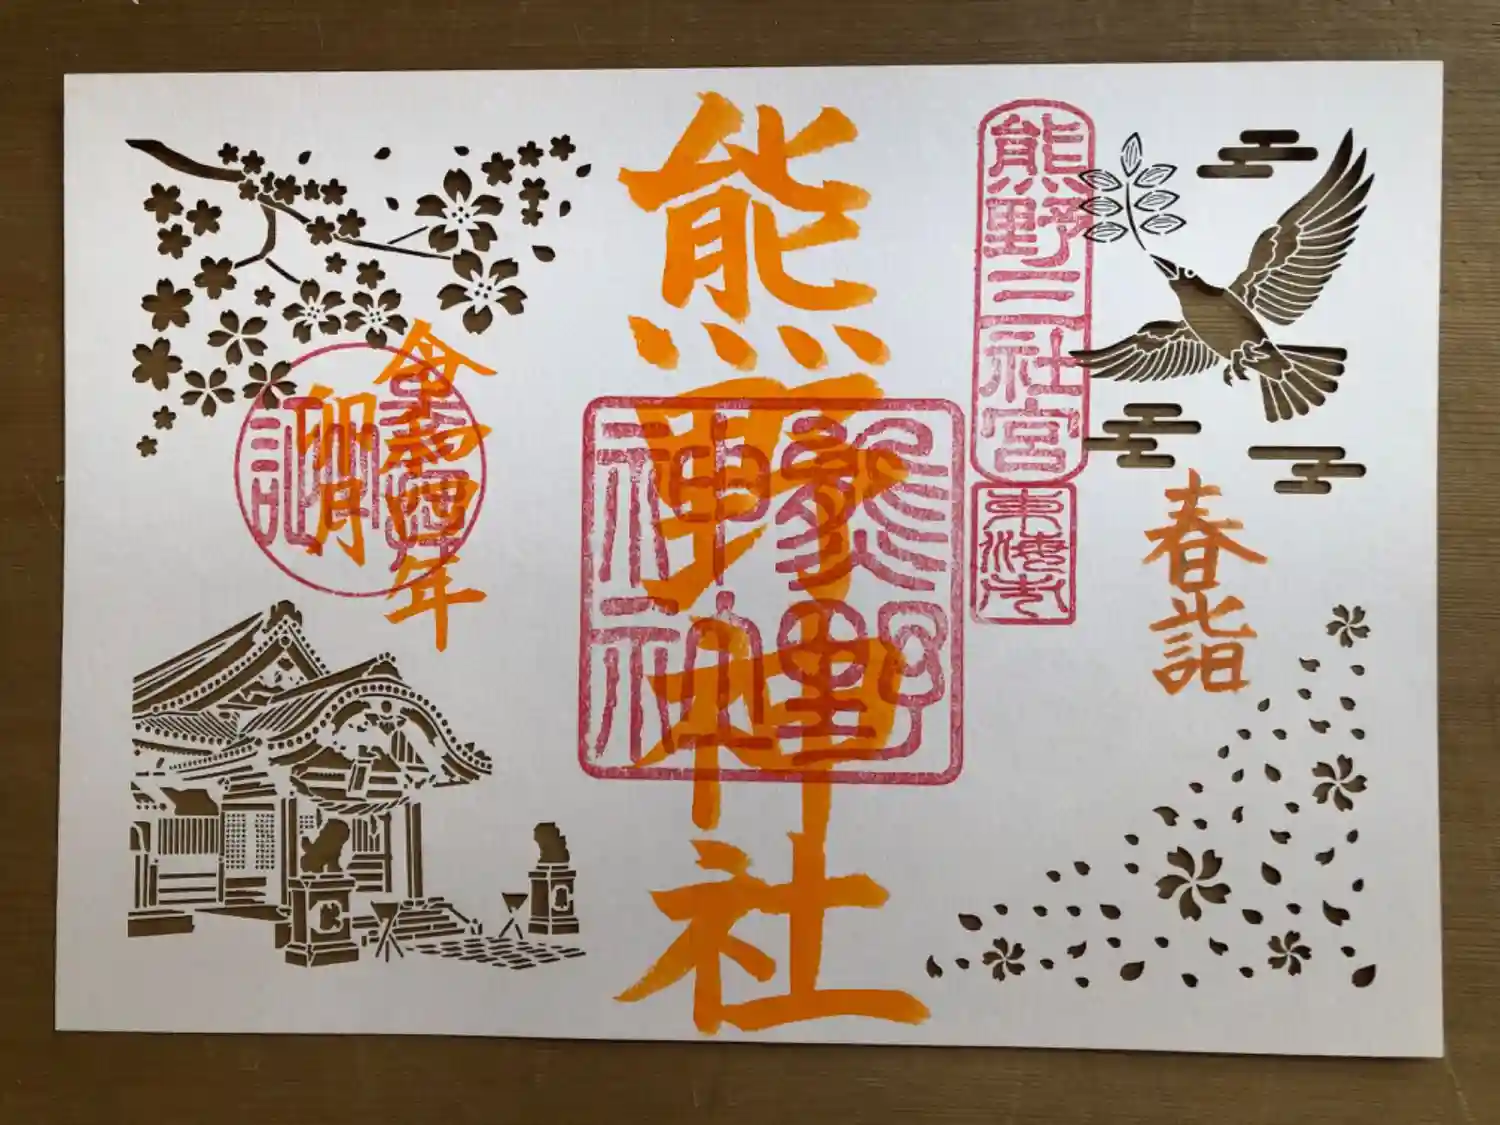 熊野三社宮
東海市
春詣
熊野神社
熊野
神社
令和四年
卯月